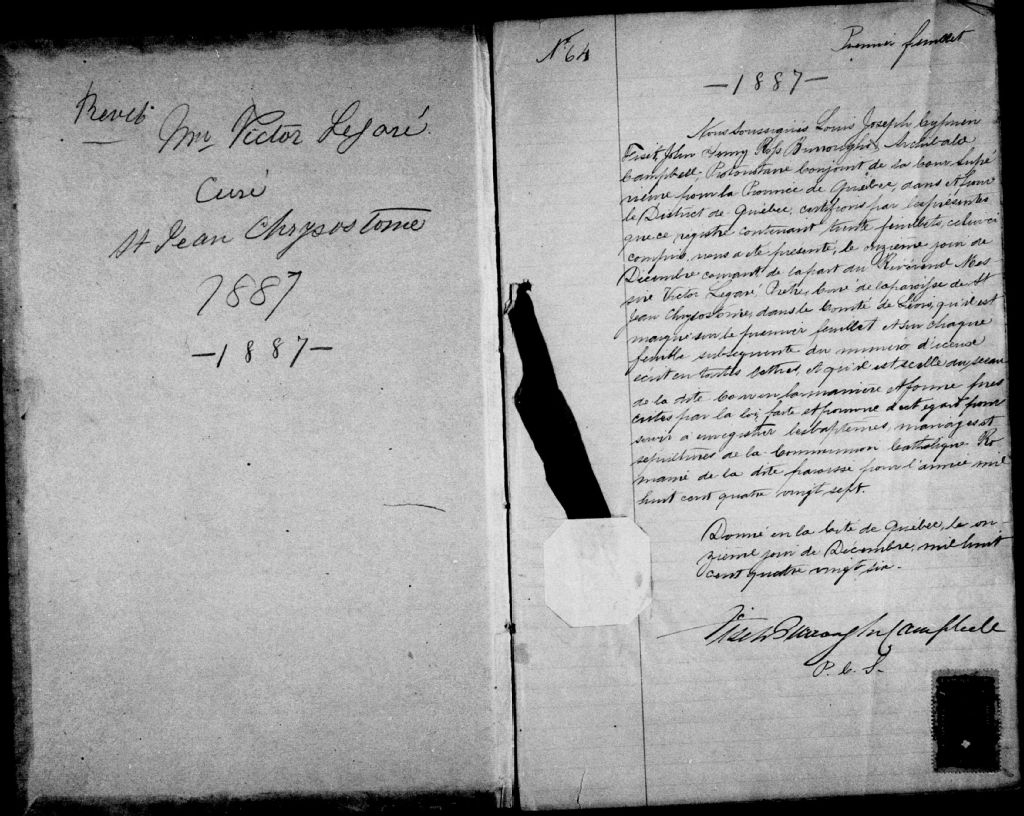 Revd
Mre Victor Legaré
Curé
St Jean Chrysostome
1887
—1887—
No 64
Premier feuillet
—1887—
Nous soussignés Louis Joseph Cyprien
Fiset, John Henry Ross Burroughs & Archibald
Campbell, Protonotaire Conjoint de la Cour Supé
rieure pour la Province de Québec, dans et pour
le District de Québec, certifions par les présentes
que ce registre contenant trente feuillets, celui ci
compris, nous a été présenté, le onzième jour de
Décembre courant de la part du Révérend Mes
sire Victor Legaré Prêtre, Curé de la paroisse de St
Jean Chrysostome, dans le Comté de Lévis, qu'il est
marqué sur le premier feuillet et sur chaque
feuille subséquente du numero d'iceux
écrit en toutes lettres, et qu'il est scellé du sceau
de la dite Cour en la manière et forme pres
crites par la loi, faite et pourvue à cet égard pour
servir à enregistrer les baptêmes, mariages et
sépultures de la Communion Catholique Ro
maine de la dite paroisse pour l'année mil
huit cent quatre vingt sept.
Donné en la Cité de Québec, le on
zième jour de Décembre, mil huit
cent quatre vingt six.
Fiset Burroughs Campbell
P. C. S.